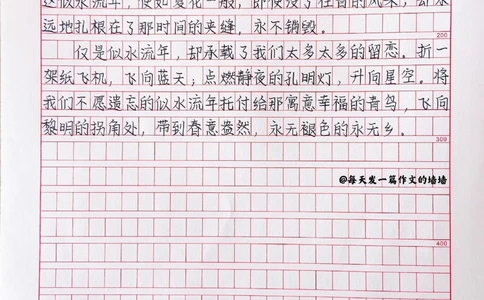 这似水流年,便如夏花一般,即使
远地扎根在了那时间的夹缝,永不销毁。
200
仅是似水流年,却承载了我们太多太多的留恋。折一
架纸飞机,飞向蓝天;点燃静夜的孔明灯,升向星空。将
我们不愿遗忘的似水流年托付给那寓意幸福的青鸟,飞向
黎明的拐角处,带到春意盎然,永无褪色的永无乡。
300
@每天发一篇作文的墙墙
400